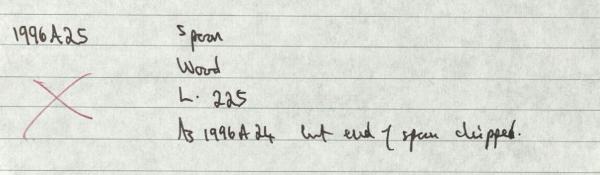 1996A25 Spoon
Wood
L. 225
As 1996A24 but end of spoon chipped.